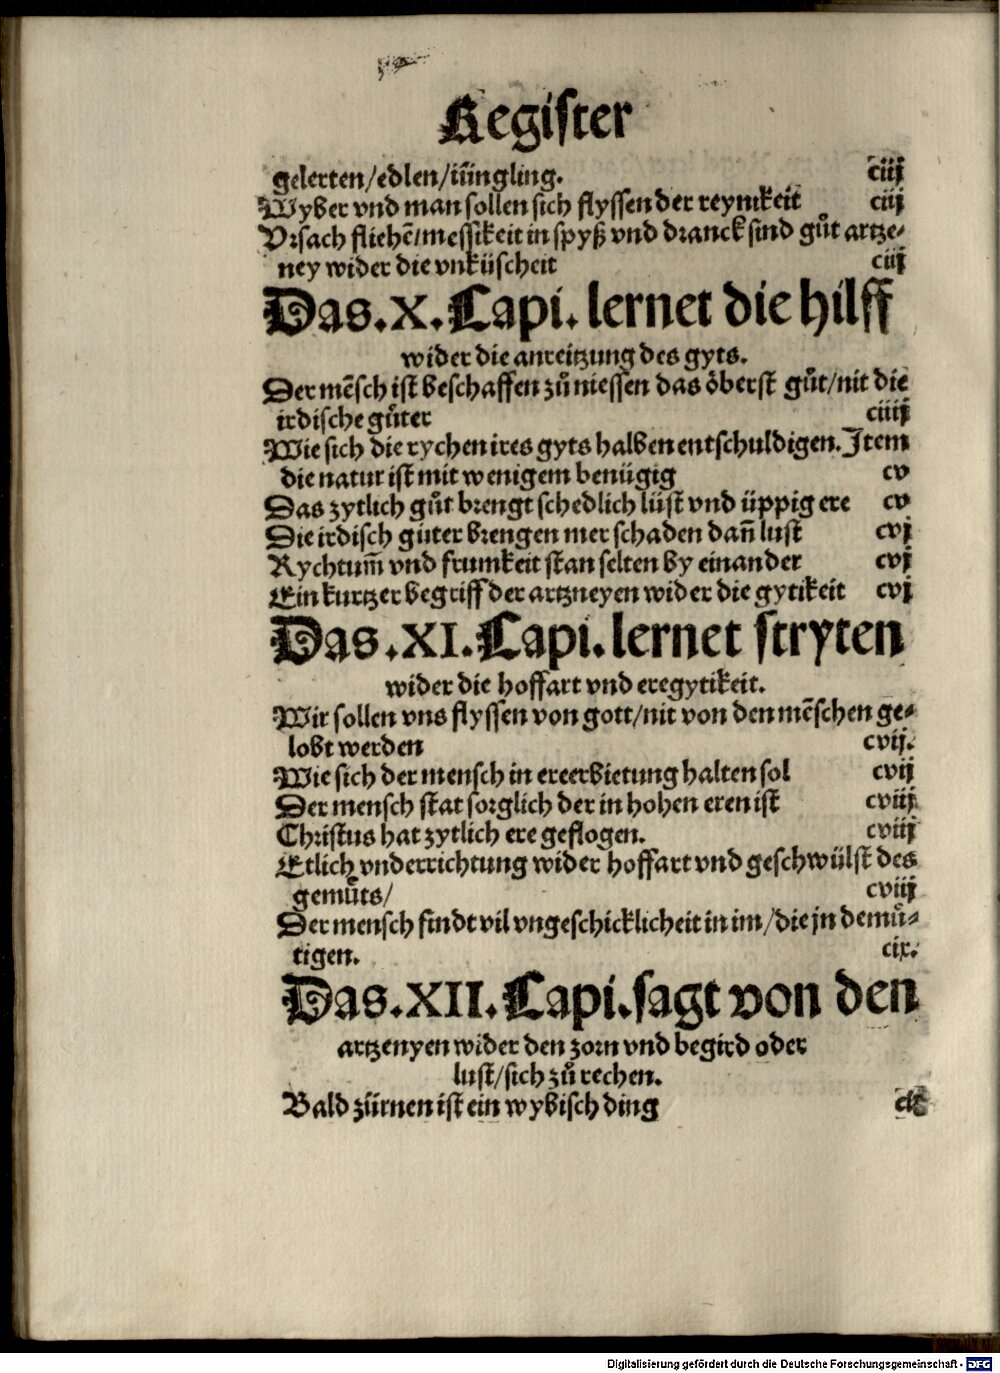 Register
gelerten/edlen/iüngling. ciij
Wyber vnd man sollen sich flyssen der reynikeit ciij
Vrsach fliehē/messikeit in spyß vnd dranck sind gůt artze-
ney wider die vnküscheit ciij
Das.X.Capi.lernet die hilff
wider die anreitzung des gyts.
Der mēsch ist beschaffen zů niessen das öberst gůt/nit die
irdische gůter ciiij
Wie sich die rychen ires gyts halben entschuldigen. Item
die natur ist mit wenigem benügig cv
Das zytlich gůt brengt schedlich lüst vnd üppig ere cv
Die irdisch guter brengen mer schaden dañ lust cvj
Rychtum̄ vnd frumkeit stan selten by einander cvj
Ein kurtzer begriff der artzneyen wider die gytikeit cvj
Das.XI.Capi.lernet stryten
wider die hoffart vnd eregytikeit.
Wir sollen vns flyssen von gott/nit von den mēschen ge-
lobt werden cvij.
Wie sich der mensch in ereerbietung halten sol cvij
Der mensch stat sorglich der in hohen eren ist cviij
Christus hat zytlich ere geflogen. cviij
Etlich vnderrichtung wider hoffart vnd geschwülst des
gemůts/ cviij
Der mensch findt vil vngeschicklicheit in im/die jn demů-
tigen. cix.
Das.XII.Capi.sagt von den
artzenyen wider den zorn vnd begird oder
lust/sich zů rechen.
Bald zürnen ist ein wybisch ding
Digitalisierung gefördert durch die Deutsche Forschungsgemeinschaft - DFG